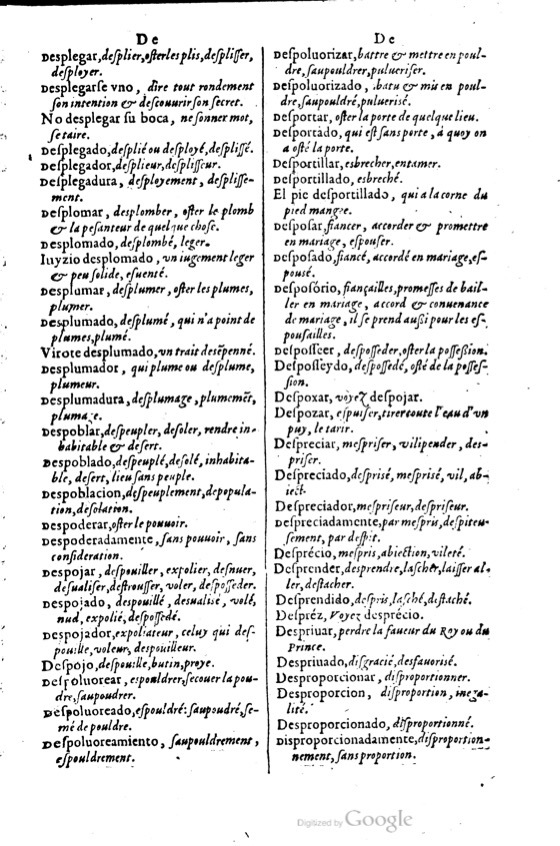 De
Desplegar, desplier, oster les plis, desplisser,
desployer.
Desplegarse vno, dire tout rondement
son intention & descouurir son secret.
No desplegar su boca, ne sonner mot,
se taire.
Desplegado, desplié ou desployé, desplissé.
Desplegador, desplieur, desplisseur.
Desplegadura, desployement, desplisse-
ment.
Desplomar, desplomber, oster le plomb
& la pesanteur de quelque chose.
Desplomado, desplombé, leger.
Iuyzio desplomado, vn iugement leger
& peu solide, esuenté.
Desplumar, desplumer, oster les plumes,
plumer.
Desplumado, desplumé, qui n'a point de
plumes, plumé.
Virote desplumado, vn trait desẽpenné.
Desplumador, qui plume ou desplume,
plumeur.
Desplumadura, desplumage, plumemẽt,
plumage.
Despoblar, despeupler, desoler, rendre in-
habitable & desert.
Despoblado, despeuplé, desolé, inhabita-
ble, desert, lieu sans peuple.
Despoblacion, despeuplement, depopula-
tion, desolation.
Despoderar, oster le pouuoir.
Despoderadamente, sans pouuoir, sans
consideration.
Despojar, despouiller, expolier, desnuer,
desualiser, destrousser, voler, desposseder.
Despojado, despouillé, desualisé, volé,
nud, expolié, despossedé.
Despojador, expoliateur, celuy qui des-
pouille, voleur, despouilleur.
Despojo, despouille, butin, proye.
Despoluorear, espouldrer, secouer la pou-
dre, saupoudrer.
Despoluoreado, espouldré: saupoudré, se-
mé de pouldre.
Despoluoreamiento, saupouldrement,
espouldrement.
De
Despoluorizar, battre & mettre en poul-
dre, saupouldrer, pulueriser.
Despoluorizado, batu & mis en poul-
dre, saupouldré, puluerisé.
Desportar, oster la porte de quelque lieu.
Desportado, qui est sans porte, à quoy on
a osté la porte.
Desportillar, esbrecher, entamer.
Desportillado, esbreché.
El pie desportillado, qui a la corne du
pied mangee.
Desposar, fiancer, accorder & promettre
en mariage, espouser.
Desposado, fiancé, accordé en mariage, es-
pousé.
Desposório, fiançailles, promesses de bail-
ler en mariage, accord & conuenance
de mariage, il se prend außi pour les es-
pousailles.
Desposseer, desposseder, oster la possession.
Despossseydo, despossedé, osté de la posses-
sion.
Despoxar, voyez despojar.
Despozar, espuiser, tirer toute l'eau d'vn
puy, le tarir.
Despreciar, mespriser, vilipender, des-
priser.
Despreciado, desprisé, mesprisé, vil, ab-
iect.
Despreciador, mespriseur, despriseur.
Despreciadamente, par mespris, despiteu-
sement, par despit.
Desprécio, mespris, abiection, vileté.
Desprender, desprendre, lascher, laisser al-
ler, destacher.
Desprendido, despris, lasché, destaché.
Despréz, Voyez desprécio.
Despriuar, perdre la faueur du Roy ou du
Prince.
Despriuado, disgracié, desfauorisé.
Desproporcionar, disproportionner.
Desproporcion, disproportion, inega-
lité.
Desproporcionado, disproportionné.
Disproporcionadamente, disproportion-
nement, sans proportion.
Digitized by Google